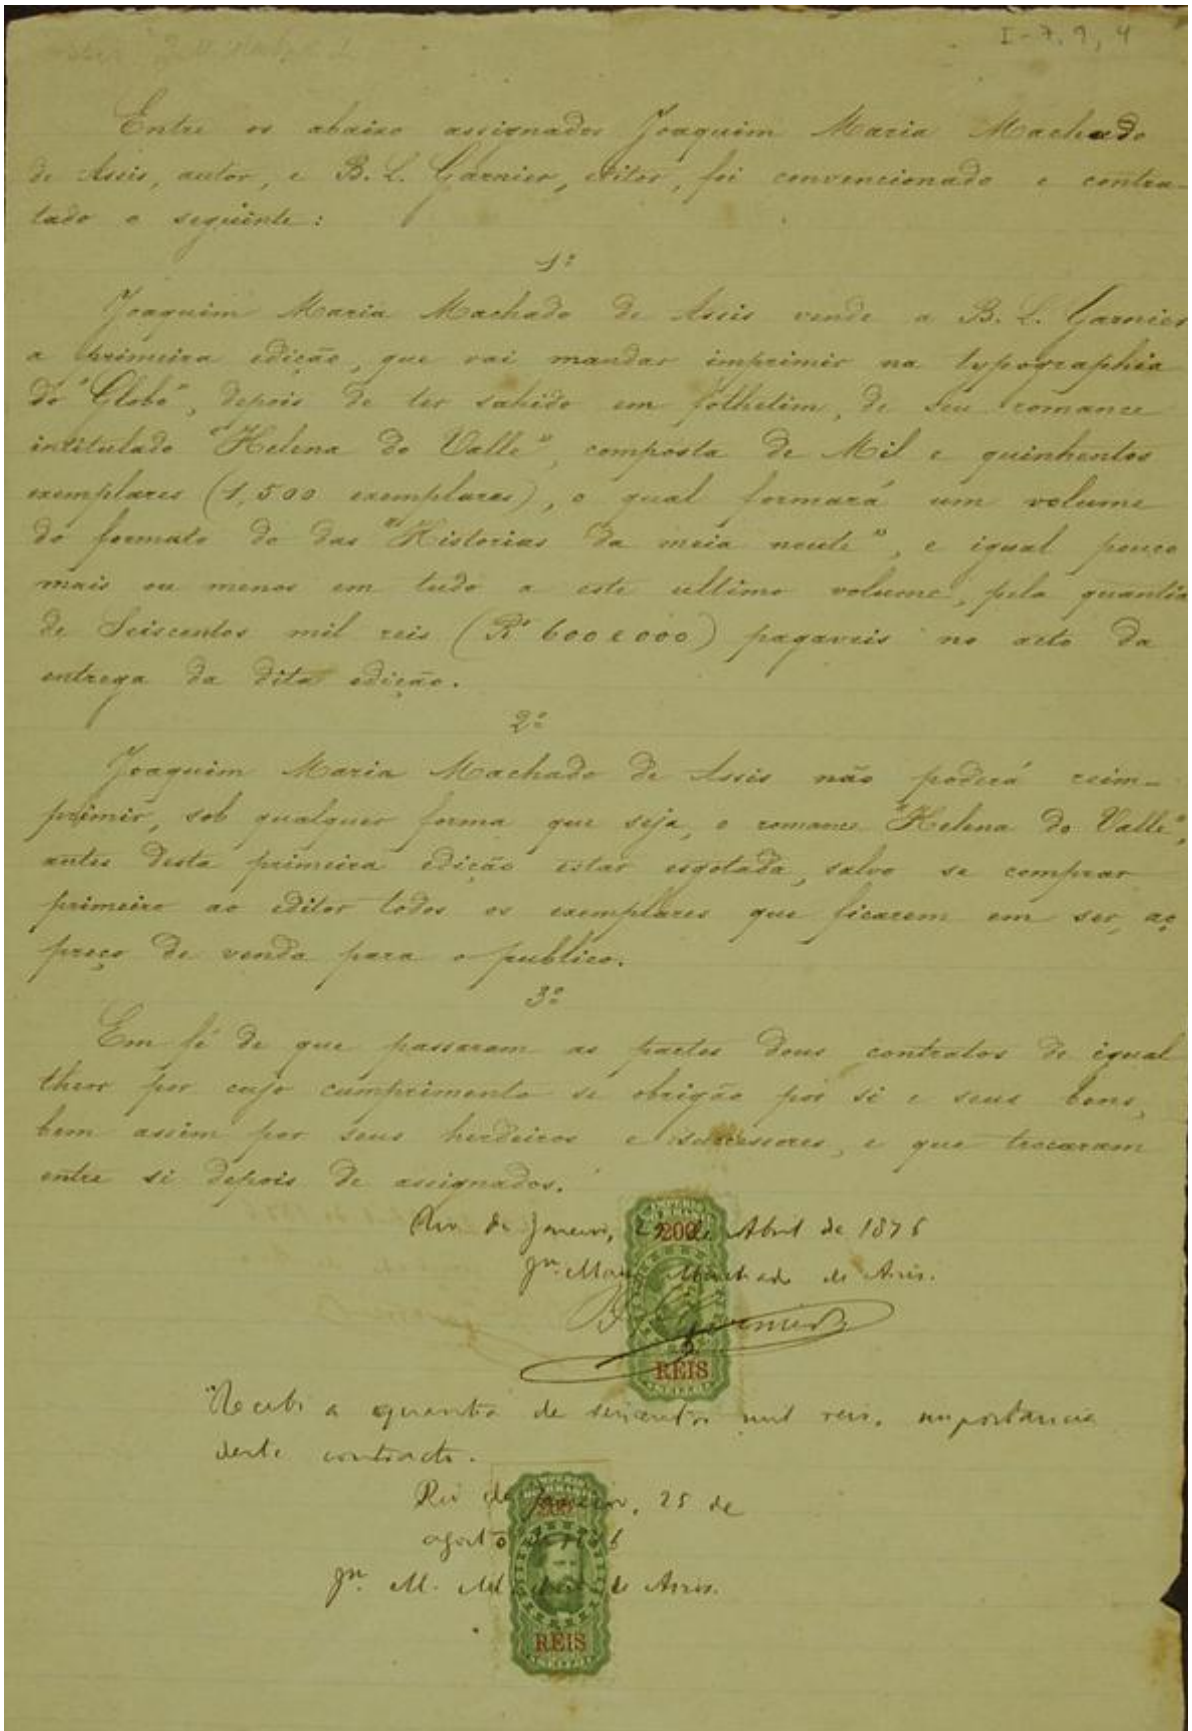 I-7, 9, 4
Entre os abaixo assignados Joaquim Maria Machado
de Assis, autor, e B. L. Garnier, editor, foi convencionado e contra-
tado o seguinte:
1º
Joaquim Maria Machado de Assis vende a B. L. Garnier
a primeira edição, que vai mandar imprimir na typographia
do "Globo", depois de ter sahido em folhetim, de seu romance
intitulado "Helena do Valle", composta de Mil e quinhentos
exemplares (1,500 exemplares), o qual formará um volume
do formato do das "Historias da meia noute", e igual pouco
mais ou menos em tudo a este ultimo volume, pela quantia
de Seiscentos mil reis (Rs 600$000) pagaveis no acto da
entrega da dita edição.
2º
Joaquim Maria Machado de Assis não poderá reim-
primir, sob qualquer forma que seja, o romance "Helena do Valle",
antes desta primeira edição estar esgotada, salvo se comprar
primeiro ao editor todos os exemplares que ficarem em ser, ao
preço de venda para o publico.
3º
Em fé de que passaram as partes dous contratos de igual
theor por cujo cumprimento se obrigão por si e seus bens,
bem assim por seus herdeiros e successores, e que trocaram
entre si depois de assignados.
Rio de Janeiro, de Abril de 1876
Jm. Maria Machado de Assis.
B. L. Garnier
200
REIS
Recebi a quantia de seiscentos mil reis, importancia
deste contracto.
Rio de Janeiro, 25 de
agosto de 1876
Jm. M. Machado de Assis.
REIS